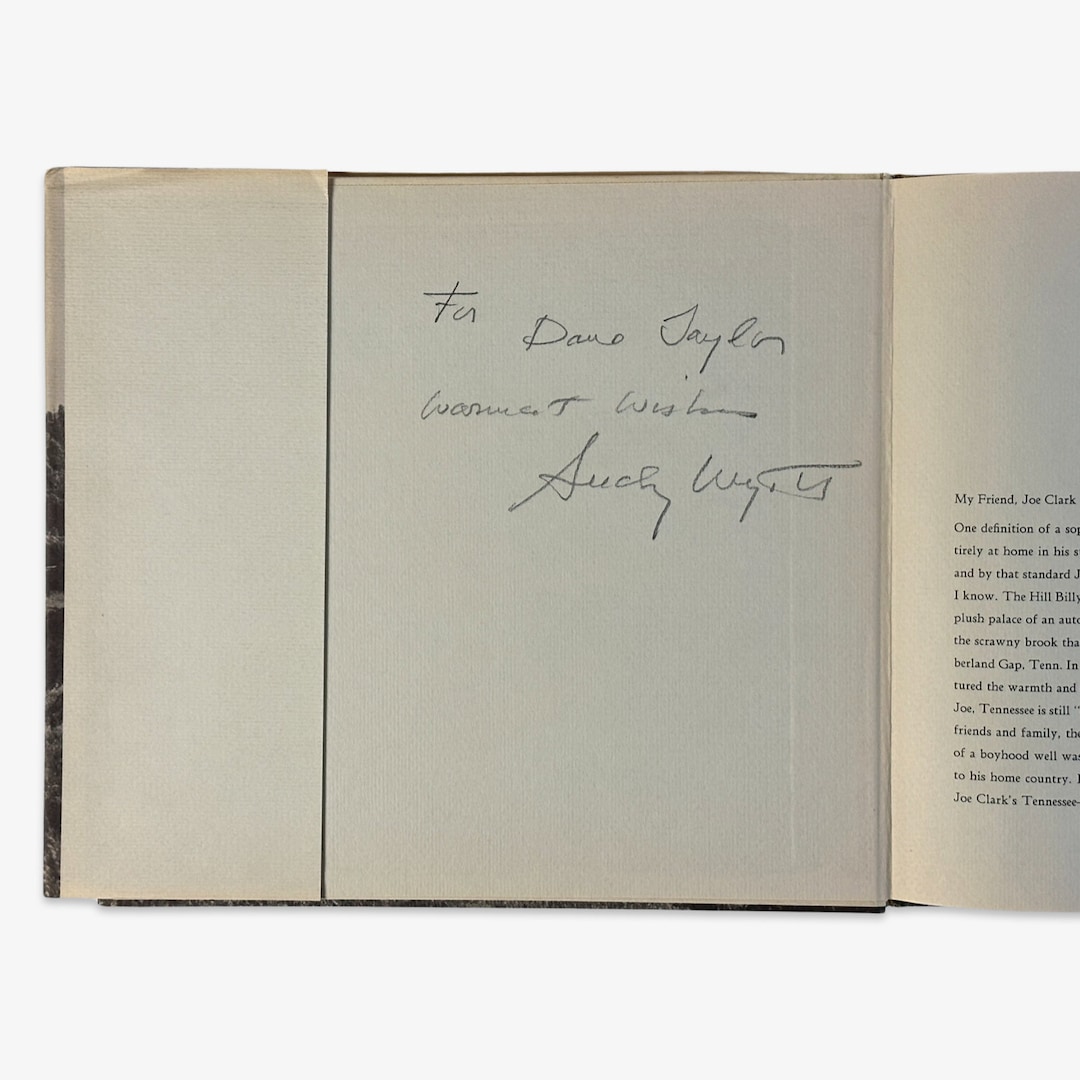 For
Dave Taylor
Warmest Wishes
My Friend, Joe Clark
One definition of a sop
tirely at home in his s
and by that standard J
I know. The Hill Billy
plush palace of an auto
the scrawny brook tha
berland Gap, Tenn. In
tured the warmth and
Joe, Tennessee is still "
friends and family, the
of a boyhood well was
to his home country. I
Joe Clark's Tennessee-